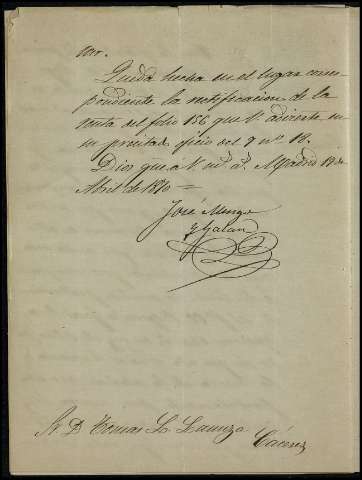 Queda hecha en el lugar corres-
pondiente la rectificacion de la
nota del folio 156 que V. advierte en
su precitado oficio del 9 nº 18.
Dios gue á V. mˢ. aˢ. Madrid 19 de
Abril de 1870 =
José
y Galan
Sr D. Tomas
Cáceres